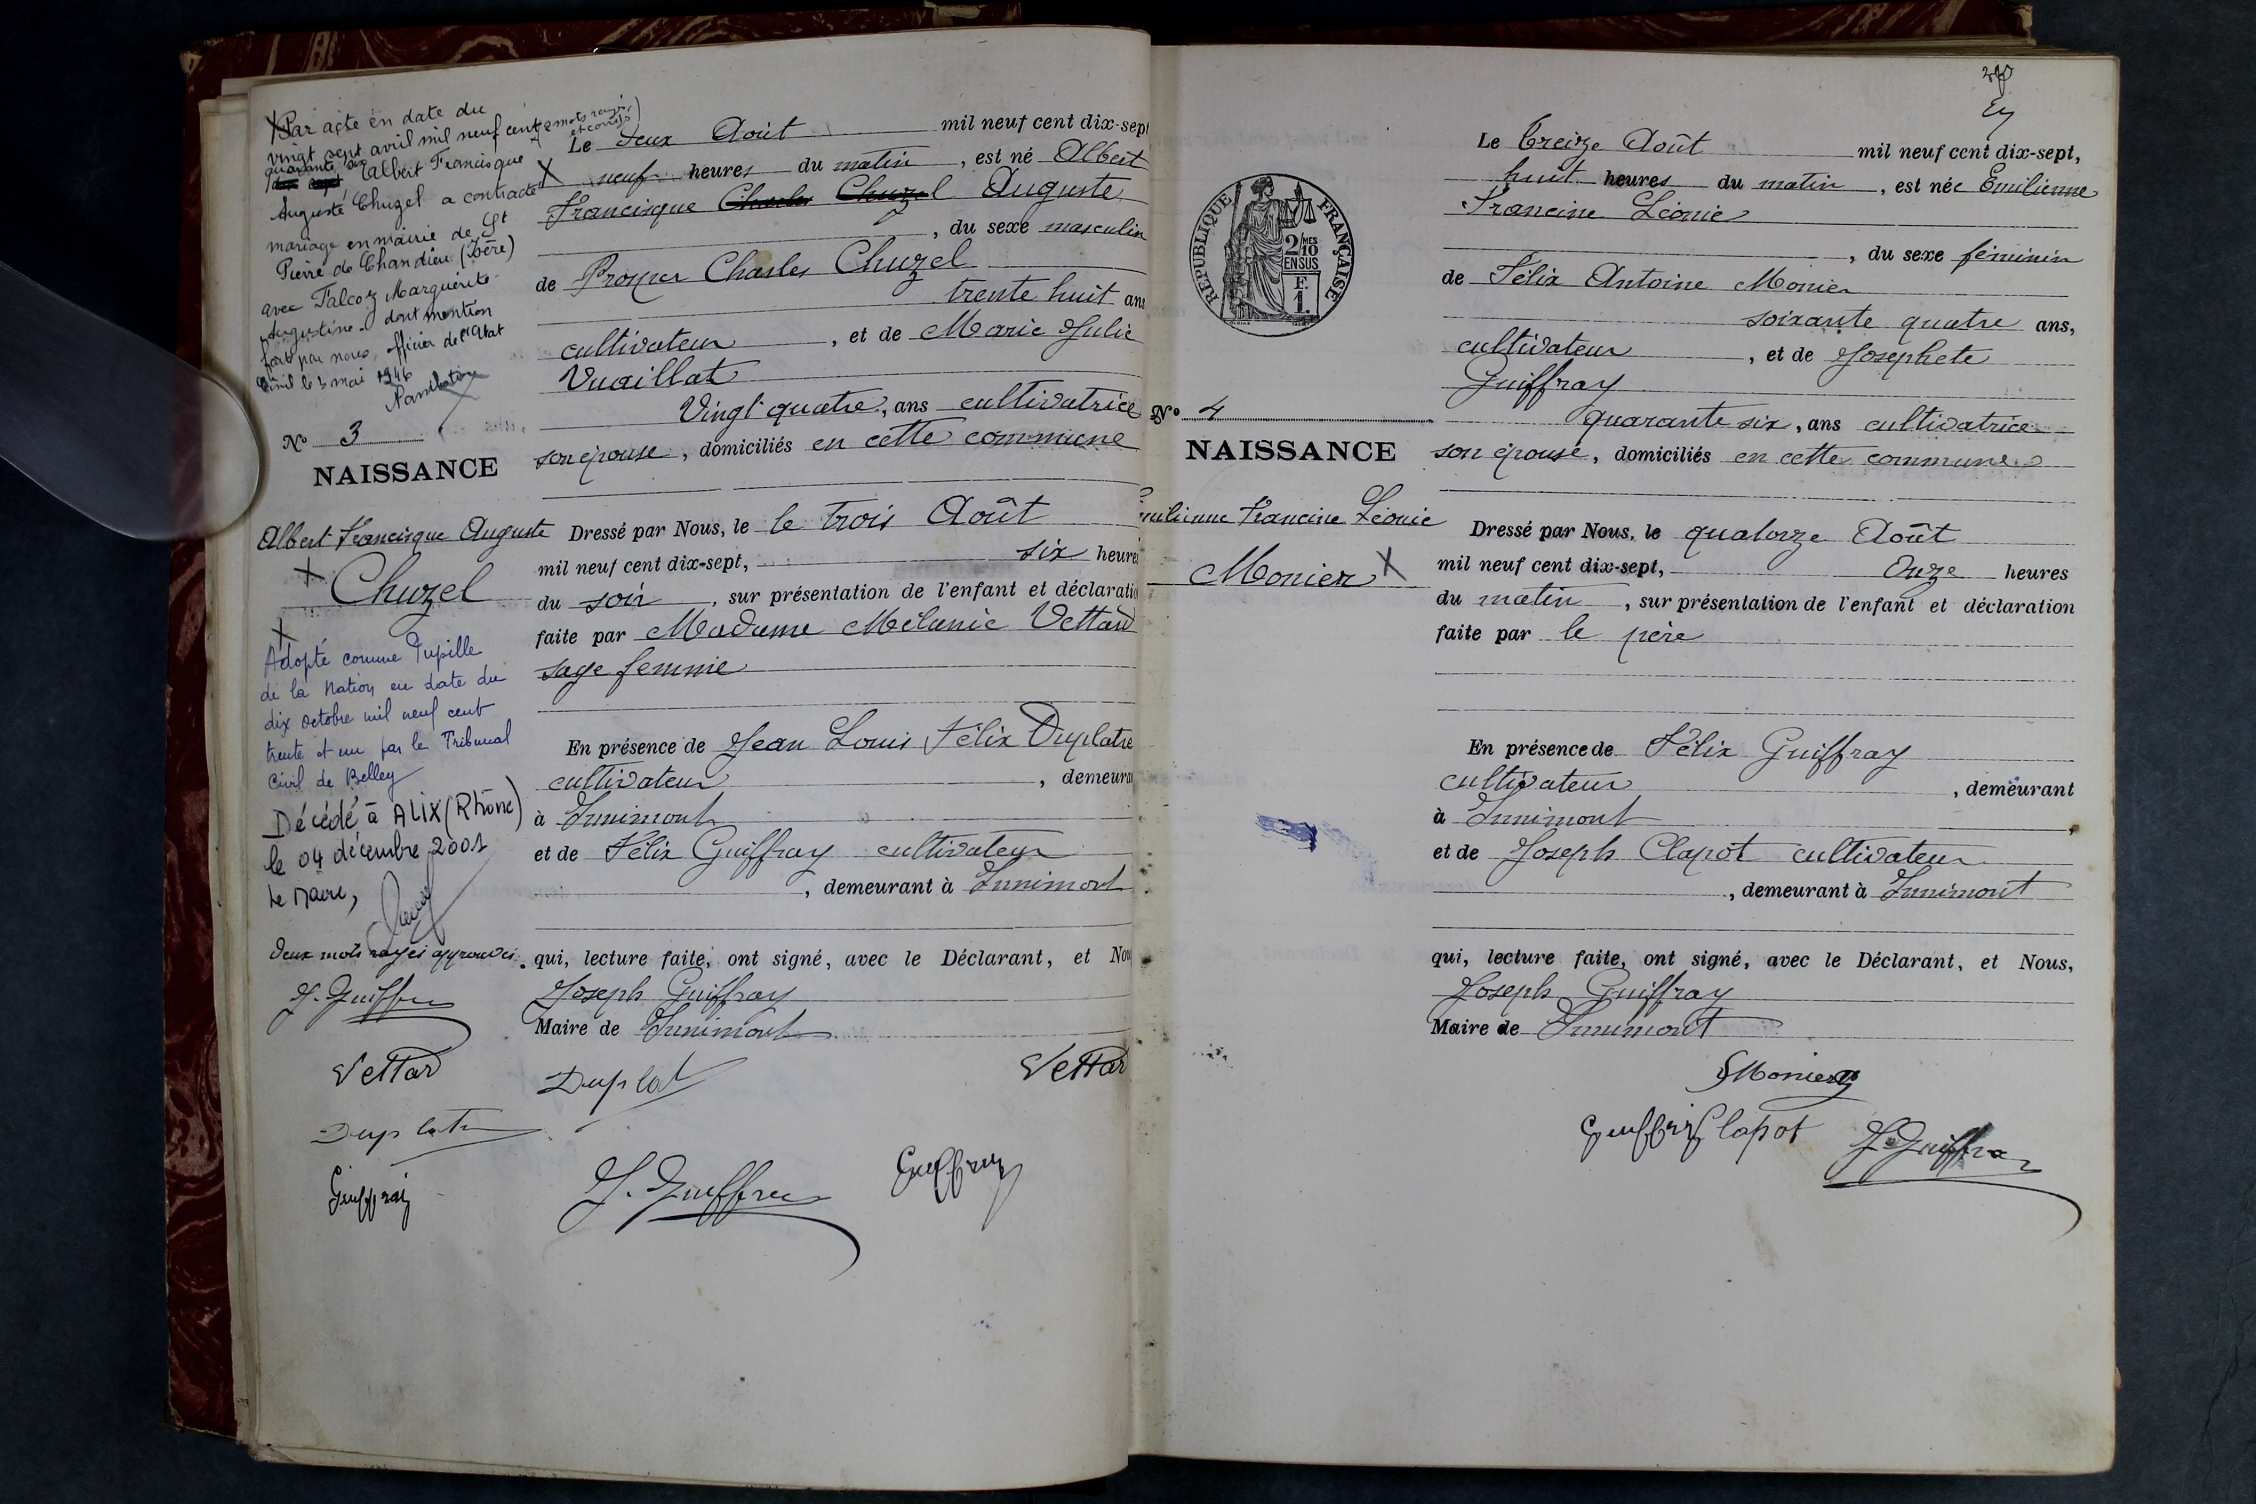 Par acte en date du
vingt sept avril mil neuf cent (2 mots rayés
et corrigés)
quarante six Albert Francisque
Auguste Chuzel a contracté
mariage en mairie de St
Pierre de Chandieu (Isère)
avec Falcoz Marguerite
Augustine dont mention
faite par nous, officier de l'état
civil le 3 mai 1946
No 3
NAISSANCE
Albert Francisque Auguste
Chuzel
Adopté comme Pupille
de la Nation en date du
dix octobre mil neuf cent
trente et un par le Tribunal
Civil de Belley
Décédé à ALIX (Rhône)
le 04 décembre 2001
Le Maire,
Deux mots rayés approuvés.
J. Guiffray
Vettard
Duplatre
Guiffray
Le deux Août mil neuf cent dix-sept
neuf heures du matin, est né Albert
Francisque Charles Chuzel Auguste
, du sexe masculin
de Prosper Charles Chuzel
trente huit ans
cultivateur, et de Marie Julie
Vuaillat
Vingt quatre, ans cultivatrice
son épouse, domiciliés en cette commune
Dressé par Nous, le le trois Août
mil neuf cent dix-sept, six heures
du soir, sur présentation de l'enfant et déclaratio
faite par Madame Mélanie Vettard
sage femme
En présence de Jean Louis Félix Duplatre
cultivateur, demeura
à Innimont
et de Félix Guiffray cultivateur
, demeurant à Innimont
qui, lecture faite, ont signé, avec le Déclarant, et Nou
Joseph Guiffray
Maire de Innimont
Duplat
Vettar
J. Guiffray
Guiffray
REPUBLIQUE FRANÇAISE
2/10 MES
EN SUS
F.
1.
No 4
NAISSANCE
Emilienne Francine Léonie
Monier
Le treize Août mil neuf cent dix-sept,
huit heures du matin, est née Emilienne
Francine Léonie
, du sexe féminin
de Félix Antoine Monier
soixante quatre ans,
cultivateur, et de Josephete
Guiffray
quarante six, ans cultivatrice
son épouse, domiciliés en cette commune
Dressé par Nous, le quatorze Août
mil neuf cent dix-sept, Onze heures
du matin, sur présentation de l'enfant et déclaration
faite par le père
En présence de Félix Guiffray
cultivateur, demeurant
à Innimont,
et de Joseph Clapot cultivateur
, demeurant à Innimont
qui, lecture faite, ont signé, avec le Déclarant, et Nous,
Joseph Guiffray
Maire de Innimont
Monier
Guiffray Clapot
J. Guiffray